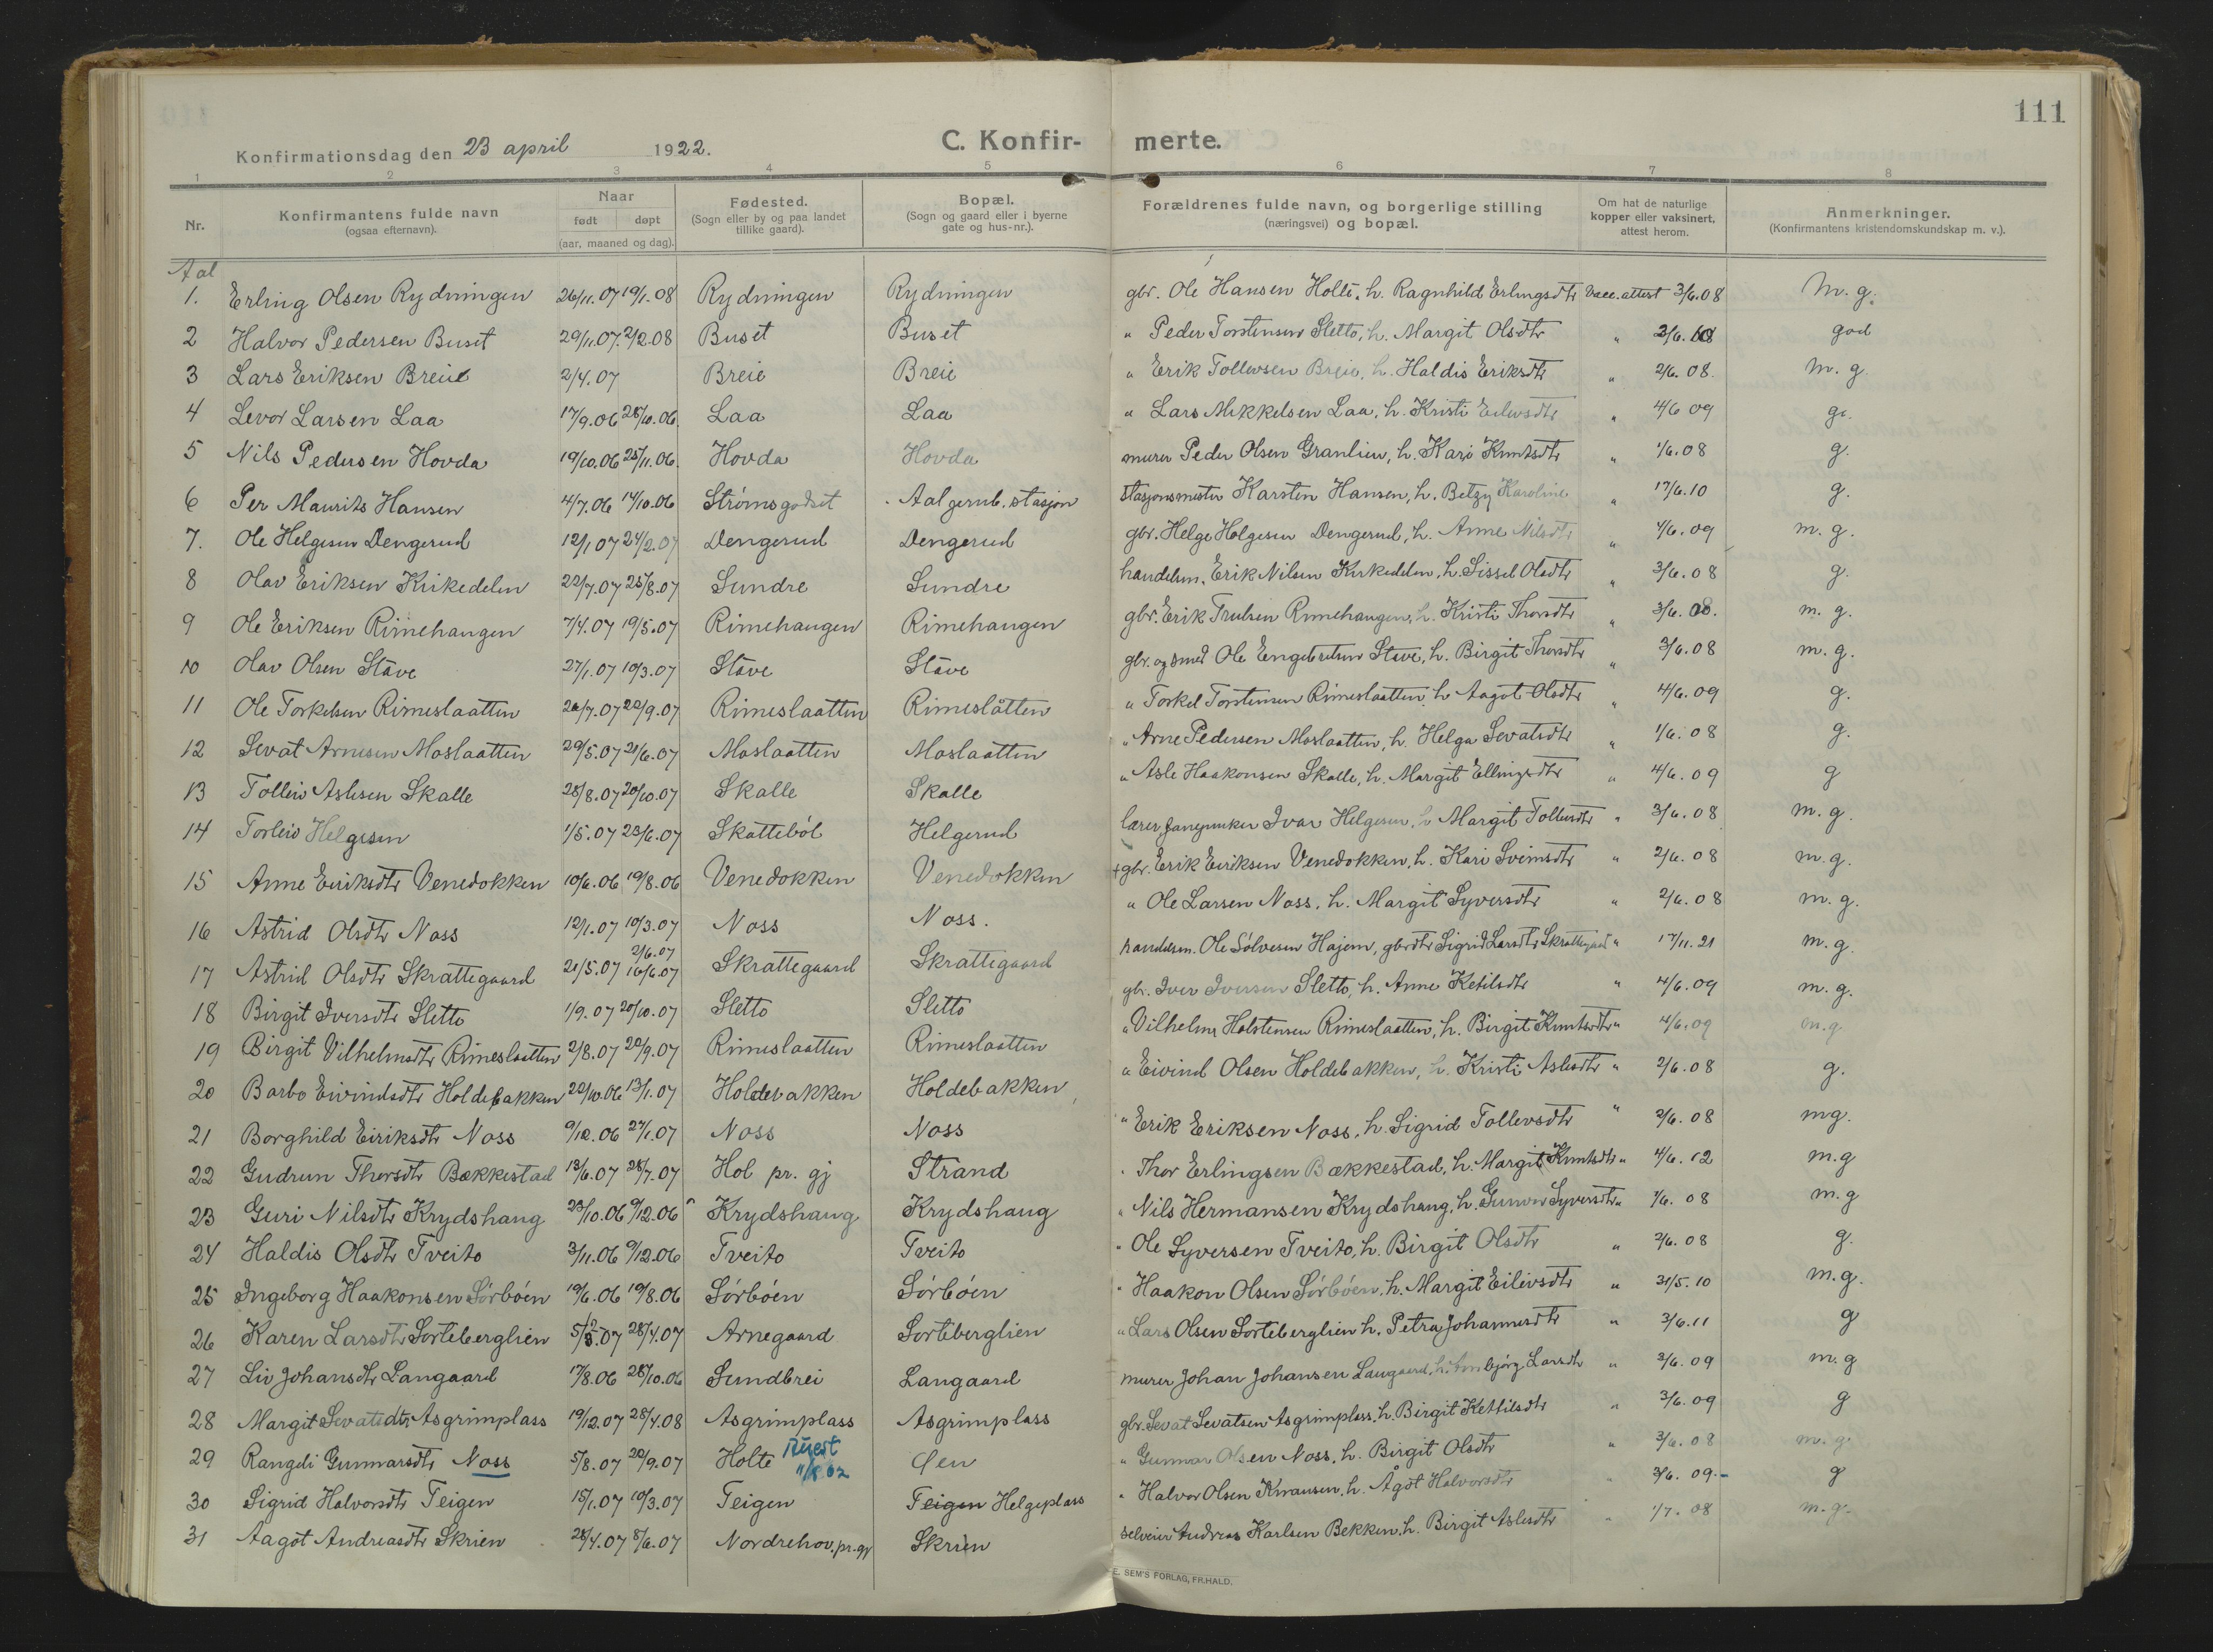 111
C. Konfir- merte.
Konfirmationsdag den 23 april 1922.
1 2 3 4 5 6 7 8
Nr. Konfirmantens fulde navn (ogsaa efternavn). Naar født døpt (aar, maaned og dag). Fødested. (Sogn eller by og paa landet tillike gaard). Bopæl. (Sogn og gaard eller i byerne gate og hus-nr.). Forældrenes fulde navn, og borgerlige stilling (næringsvei) og bopæl. Om hat de naturlige kopper eller vaksinert, attest herom. Anmerkninger. (Konfirmantens kristendomskundskap m. v.).
Aal
1. Erling Olsen Rydningen 26/11.07 19/1.08 Rydningen Rydningen gbr. Ole Hansen Holte, h. Ragnhild Erlingsdtr Vacc.attest 3/6.08 M. g.
2 Halvor Pedersen Buset 29/11.07. 2/2.08 Buset Buset " Peder Torstensen Sletto, h. Margit Olsdtr " 3/6. god
3 Lars Eriksen Breie 2/4.07 Breie Breie " Erik Tollevsen Breie, h. Haldis Eriksdtr " 2/6. 08. m. g.
4 Levor Larsen Laa 17/9.06 28/10.06. Laa Laa " Lars Mikkelsen Laa, h. Kristi Eilevsdtr " 4/6 09 g.
5 Nils Pedersen Hovda 19/10.06 25/11.06. Hovda Hovda murer Peder Olsen Granlien, h. Kari Knutsdtr " 1/6.08 g.
6 Per Maurits Hansen 4/7.06 14/10.06 Strømsgodset Aal jernb. stasjon stasjonsmester Karsten Hansen, h. Betzy Karoline " 17/6.10 g.
7. Ole Helgesen Dengerud 12/1 07 24/2.07 Dengerud Dengerud gbr. Helge Helgesen Dengerud, h. Anne Nilsdtr " 4/6.09 m. g.
8 Olav Eriksen Kirkedelen 22/7.07 25/8.07 Sundre Sundre handelsm. Erik Nilsen Kirkedelen, h. Sissel Olsdtr " 3/6.08 g.
9 Ole Eriksen Rimehaugen 7/4.07 19/5.07 Rimehaugen Rimehaugen gbr. Erik Trulsen Rimehaugen, h. Kristi Thorsdtr " 3/6. 08. m. g.
10 Olav Olsen Stave 27/1.07 10/3.07 Stave Stave gbr. og smed Ole Engebretsen Stave, h. Birgit Thorsdtr " 3/6.08 m. g.
11 Ole Torkelsen Rimeslaatten 26/7.07 22/9.07 Rimeslaatten Rimeslåtten " Torkel Torstensen Rimeslaatten, h. Aagot Olsdtr " 4/6.09 g.
12 Sevat Arnesen Moslaatten 29/5.07 21/6.07 Moslaatten Moslaatten " Arne Pedersen Moslaatten, h. Helga Sevatsdtr " 1/6. 08 g.
13 Tolleiv Aslesen Skalle 28/8.07 20/10.07 Skalle Skalle " Asle Haakonsen Skalle, h. Margit Ellingsdtr " 4/6. 09 g
14 Torleiv Helgesen 1/5.07 23/6.07 Skattebøl Helgerud lærer, Ivar Helgesen, h. Margit Tollevsdtr " 3/6.08 m. g.
15 Anne Eiriksdtr Venedokken 10/6.06 19/8.06 Venedokken Venedokken gbr. Erik Eiriksen Venedokken, h. Kari Sveinsdtr " 2/6. 08 m. g.
16 Astrid Olsdtr Noss 12/1.07 10/3.07 Noss Noss. " Ole Larsen Noss, h. Margit Syversdtr " 2/6. 08 m. g.
17 Astrid Olsdtr Skrattegaard 21/5.07 2/6.07 16/6.07 Skrattegaard Skrattegaard handelsm. Ole Sølvesen Hajem, gbrdtr Sigrid Larsdtr Skrattegaard " 17/11.21 m. g.
18 Birgit Iversdtr Sletto 1/9.07 20/10.07 Sletto Sletto gbr. Iver Iversen Sletto, h. Anne Ketilsdtr " 4/6.09 m. g.
19 Birgit Vilhelmsdtr Rimeslaatten 2/8.07 22/9.07 Rimeslaatten Rimeslaatten " Vilhelm Holstensen Rimeslaatten, h. Birgit Knutsdtr " 4/6.09 m.g.
20 Barbo Eivindsdtr Holdebakken 22/10.06 13/1.07 Holdebakken Holdebakken " Eivind Olsen Holdebakken, h. Kristi Aslesdtr " 2/6.08 g.
21 Borghild Eiriksdtr Noss 9/12.06 27/1.07 Noss Noss " Erik Eriksen Noss, h. Sigrid Tollevsdtr " 2/6.08 mg.
22 Gudrun Thorsdtr Bækkestad 13/6.07 28/7.07 Hol pr. gj Strand " Thor Erlingsen Bækkestad, h. Margit Knutsdtr " 4/6. 12 m.g
23 Guri Nilsdtr Krydshaug 23/10.06 9/12.06 Krydshaug Krydshaug " Nils Hermansen Krydshaug, h. Gunvor Syversdtr " 1/6. 08 m.g
24 Haldis Olsdtr Tveito 3/11.06 9/12.06 Tveito Tveito " Ole Syversen Tveito, h. Birgit Olsdtr " 2/6.08 g.
25 Ingeborg Haakonsen Sørbøen 19/6.06 19/8.06 Sørbøen Sørbøen " Haakon Olsen Sørbøen, h. Margit Eilivsdtr " 31/5.10 m.g.
26 Karen Larsdtr Sorteberglien 28/4.07 Arnegaard Sorteberglien " Lars Olsen Sorteberglien h. Petra Johannesdtr " 3/6.11 g
27 Liv Johansdtr Langaard 17/8.06 28/10.06 Sundbrei Langaard murer Johan Johansen Langaard, h. Larsdtr " 3/6.09 m.g
28 Margit Sevatsdtr Asgrimplass 19/12.07 28/4.08 Asgrimplass Asgrimplass gbr. Sevat Sevatsen Asgrimplass, h. Birgit Kettilsdtr " 3/6.09 g
29 Rangdi Gunnarsdtr Noss 5/8.07 22/9.07 Holte Øen " Gunnar Olsen Noss, h. Birgit Olsdtr " 3/6.08 m.g.
30 Sigrid Halvorsdtr Teigen 15/1.07 10/3.07 Teigen Teigen Helgeplass " Halvor Olsen h. Ågot Halvorsdtr " 3/6.09. g
31 Aagot Andreasdtr Skrien 28/4.07 8/6.07 Nordrehov. pr. gj Skrien selveier Andreas Karlsen Bekken, h. Birgit Aslesdtr " 1/7. 08 m.g.
E. SEM'S FORLAG, FR.HALD.